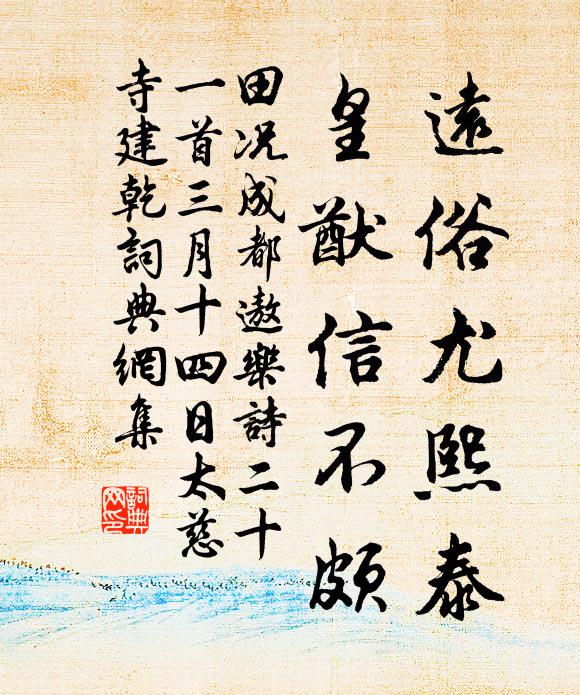 遠俗尤熙泰
皇猷信不頗
田況成都遨樂詩二十
一首三月十四日太慈
寺建乾詞典網集
詞典
网印